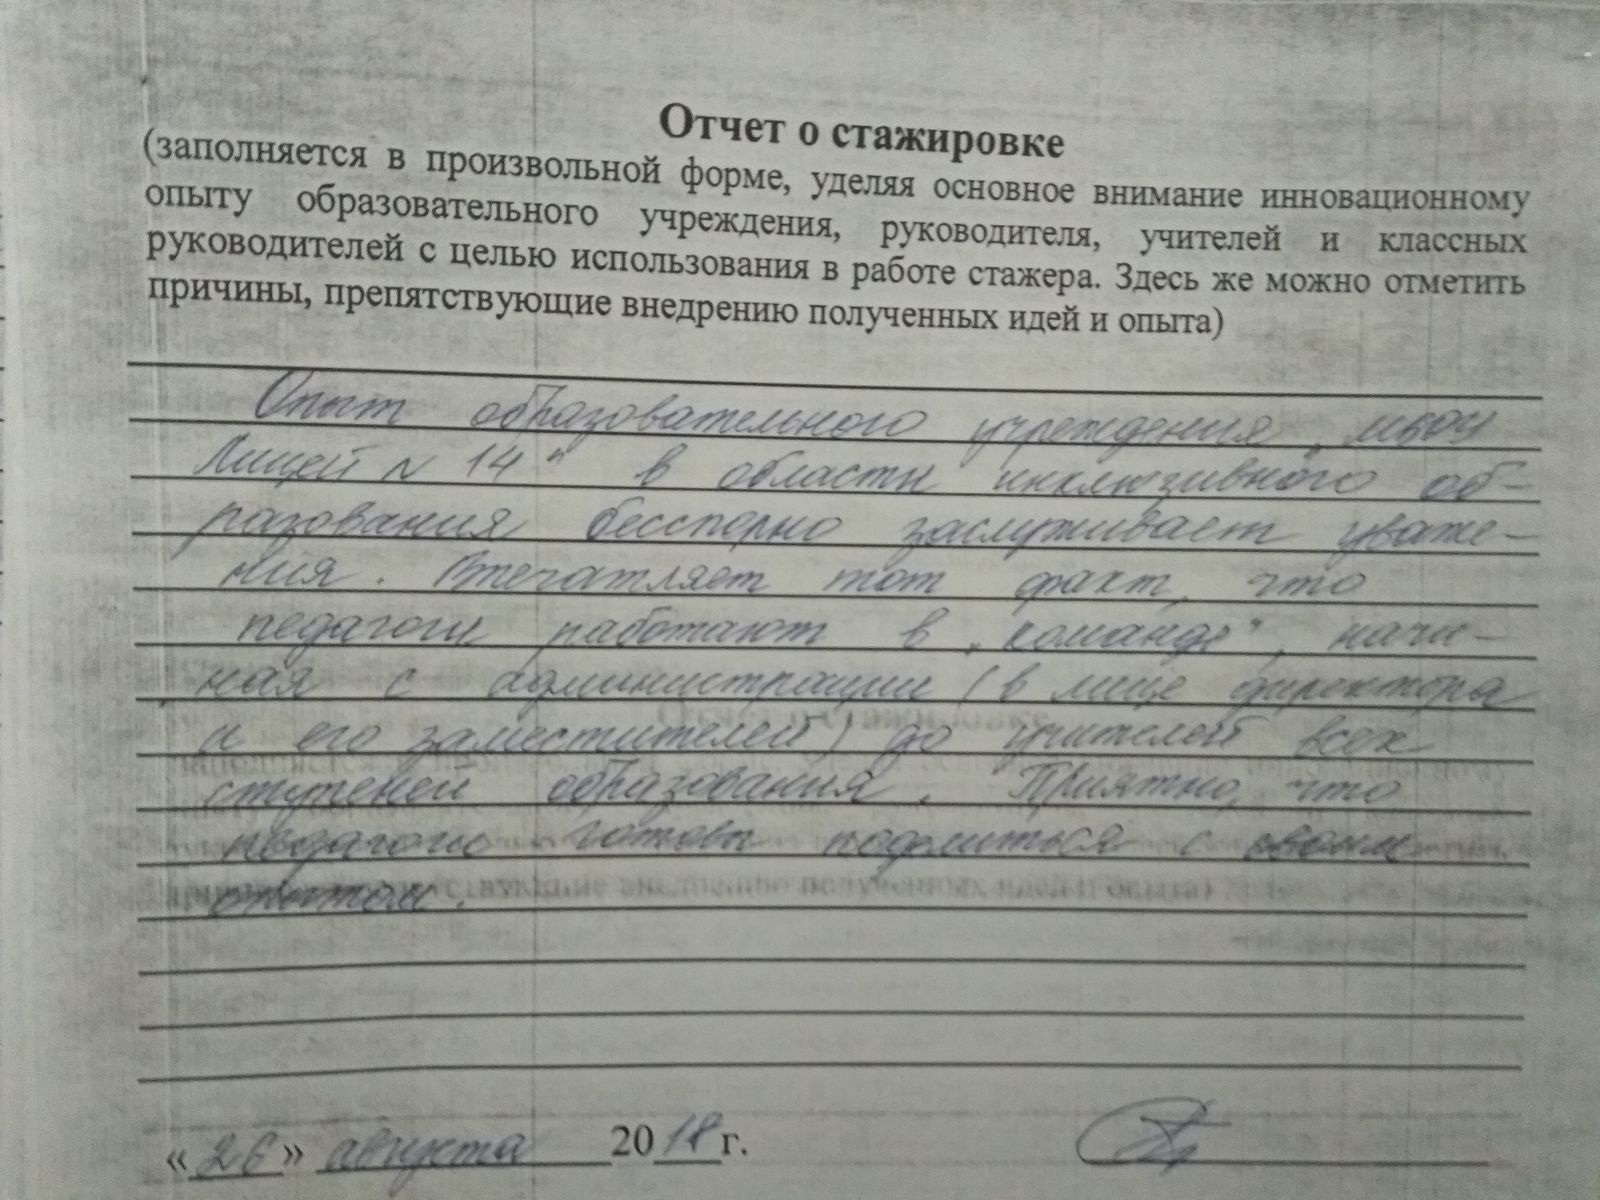 Отчет о стажировке
(заполняется в произвольной форме, уделяя основное внимание инновационному
опыту образовательного учреждения, руководителя, учителей и классных
руководителей с целью использования в работе стажера. Здесь же можно отметить
причины, препятствующие внедрению полученных идей и опыта)
Опыт образовательного учреждения „МБОУ
Лицей № 14" в области инклюзивного об-
разования бесспорно заслуживает уваже-
ния. Впечатляет тот факт, что
педагоги работают в „команде", начи-
ная с администрации (в лице директора
и его заместителей) до учителей всех
ступеней образования. Приятно, что
педагоги готовы поделиться с своим
опытом.
«26» августа 2018 г.